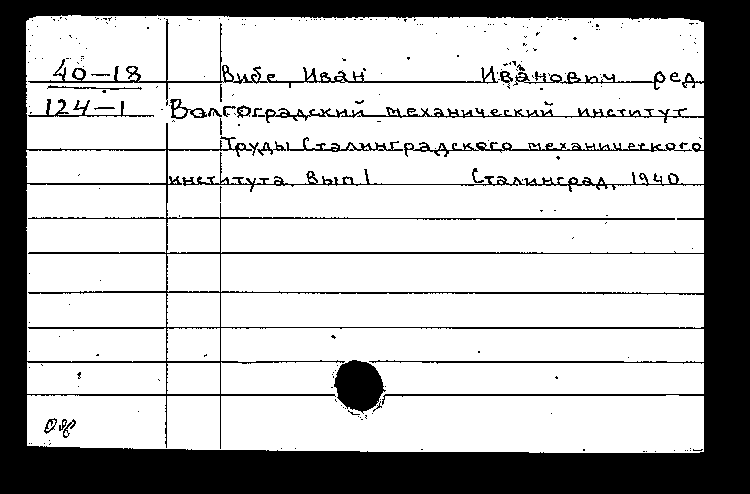 40-18 Вибе, Иван Иванович ред.
124-1 Волгоградский механический институт
Труды Сталинградского механического
института. Вып 1. Сталинград, 1940